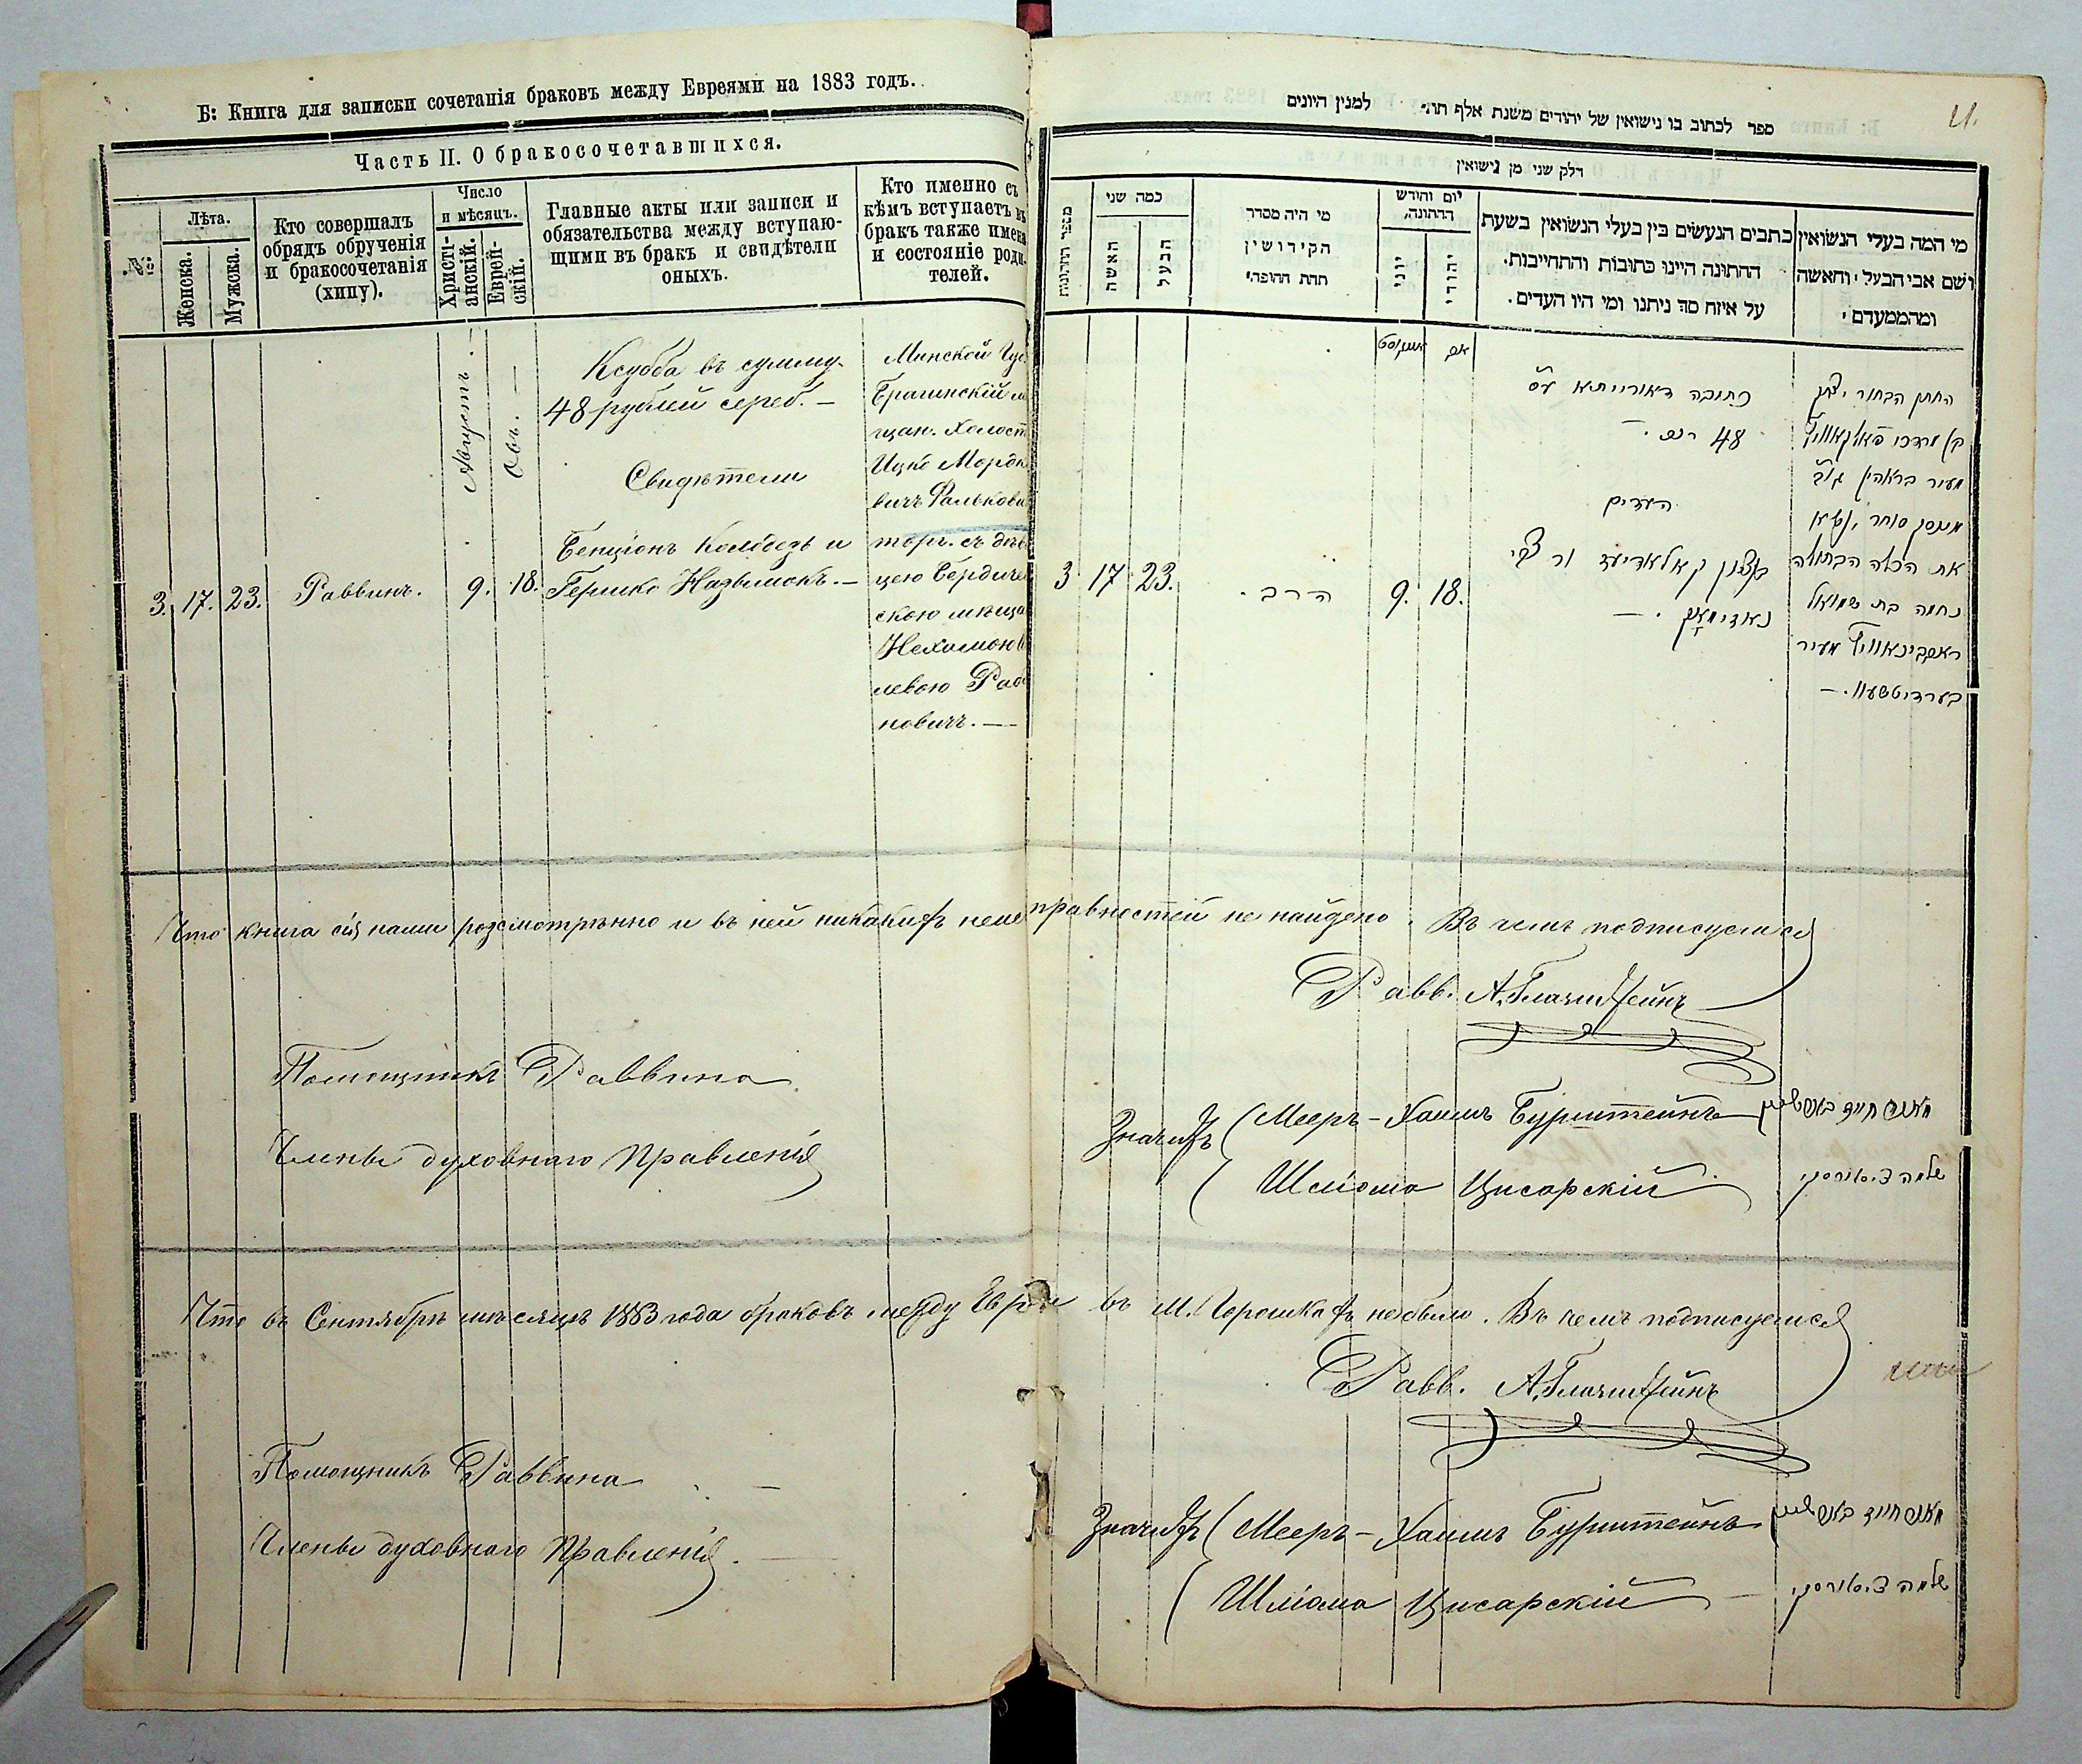 Б: Книга для записки сочетанія браковъ между Евреями на 1883 годъ.
Часть II. О бракосочетавшихся.
№
Лѣта.
Женска.
Мужска.
Кто совершалъ
обрядъ обрученія
и бракосочетанія
(хипу).
Число
и мѣсяцъ.
Христі-
анскій.
Еврей-
скій.
Главные акты или записи и
обязательства между вступаю-
щими въ бракъ и свидѣтели
оныхъ.
Кто именно съ
кѣмъ вступаетъ въ
бракъ также имена
и состояніе роди-
телей.
3. 17. 23.
Раввинъ.
Августъ.
9.
Овъ.
18.
Ксубба въ сумму
48 рублей сереб. —
Свидѣтели
Бенціонъ Колодезь и
Гершко
Минской Гу
Брагинскій м
щан. Холост
Ицко Мордк
вичъ Фалькови
торг. съ дѣв
цею Бердиче
скою мѣща
Нехамою
левою Раб
новичъ. —
ספר לכתוב בו נישואין של יהודים משנת אלף תת׳ למנין היונים
חלק שני מן נישואין
מספר החתונות
כמה שני
האשה
הבעל
מי היה מסדר
הקידושין
תחת החופה׳
יום וחודש
החתונה,
יוני
יהודי
כתבים הנעשים בין בעלי הנשואין בשעת
החתונה היינו כתובות והתחייבות.
על איזה סך ניתנו ומי היו העדים.
מי המה בעלי הנשואין
ושם אבי הבעל׳ והאשה
ומהממעדם׳
3 17 23.
הרב.
אויגוסט
9.
אב
18.
כתובה דאורייתא עס
48
העדים
החתן הבחור
מעיר בראהין
את הכלה הבתולה
נחמה בת שמואל
ראבינאוויץ מעיר
בערדיטשעוו. —
Что книга сія нами розсмотрѣнно и въ ней никакихъ неисправностей не найдено. Въ чемъ подписуемися
Равв. А. Глазштейнъ
Помощникъ Раввина
Члены духовнаго Правленія
Значитъ
Мееръ-Хаимъ Бурштейнъ
Шліома Цисарскій
Что въ Сентябрѣ мѣсяцѣ 1883 года браковъ между Евреи въ м. Горошкахъ небыло. Въ чемъ подписуемися
Равв. А. Глазштейнъ
Помощникъ Раввина
Члены духовнаго Правленія
Значитъ
Мееръ-Хаимъ Бурштейнъ
Шліома Цисарскій